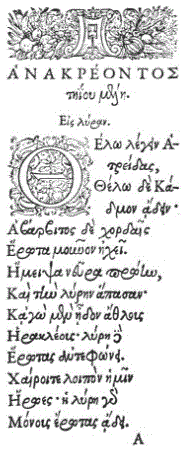 ΑΝΑΚΡΕΟΝΤΟΣ
τηΐου μέλη.
Εἰς λύραν.
Θέλω λέγειν Ἀ-
τρείδας,
Θέλω δὲ Κά-
δμον ᾄδειν·
Ἁ βάρβιτος δὲ χορδαῖς
Ἔρωτα μοῦνον ἠχεῖ.
Ἤμειψα νεῦρα πρώην,
Καὶ τὴν λύρην ἅπασαν·
Κἀγὼ μὲν ᾖδον ἄθλους
Ἡρακλέους· λύρη δὲ
Ἔρωτας ἀντεφώνει.
Χαίροιτε λοιπὸν ἡμῖν
Ἥρωες· ἡ λύρη γὰρ
Μόνους ἔρωτας ᾄδει.
Α